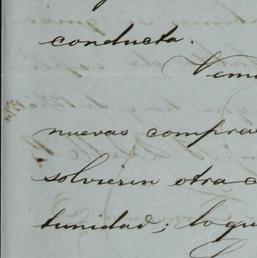 conducta.
nuevas compras
solvieren otra c
tunidad; lo qu